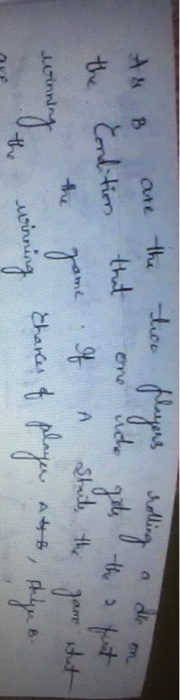 A & B are the two players rolling a die on
the Condition that one who gets the 2 first
winning the game. If A starts the game what
are the winning chances of player A & B, player B.